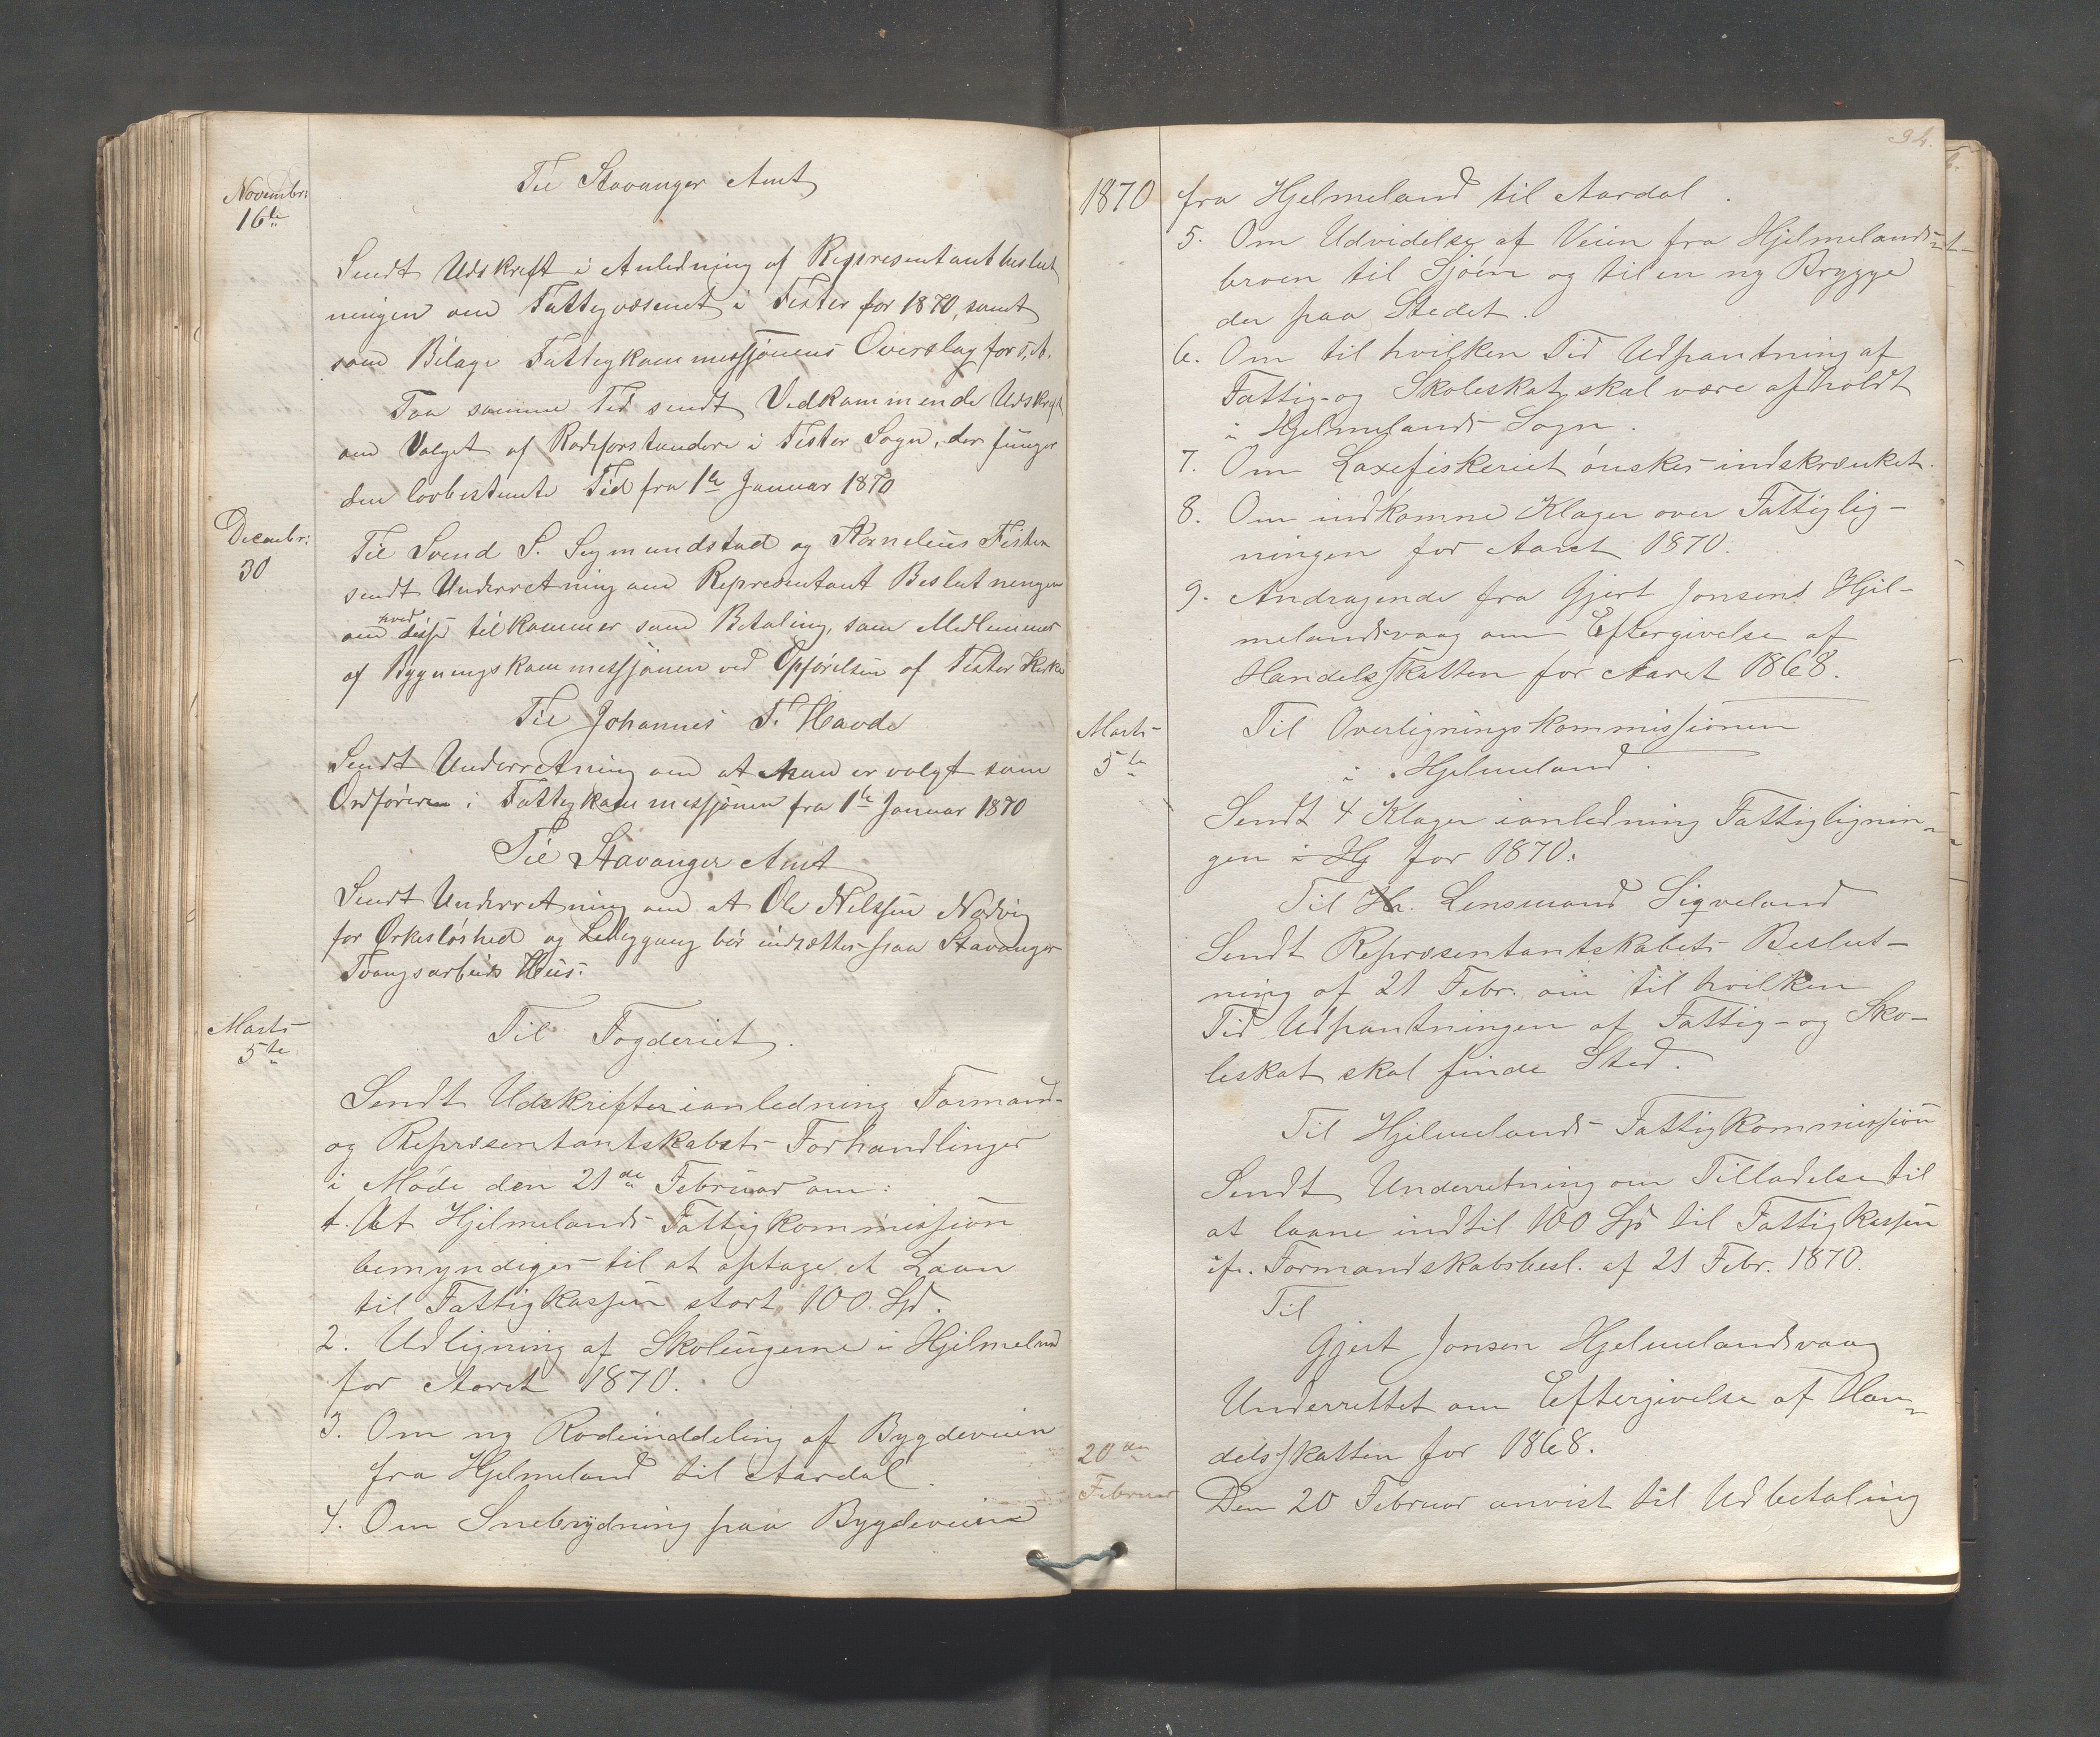 Novembr:
16de
Til Stavanger Amt
Sendt Udskrift i Anledning af Representantbeslut
ningen om Fattigvæsenet i Fister for 1870, samt
som Bilage Fattigkommissjonens Overslag for s. A.
Paa samme Tid sendt Vedkammende Udskrift
om Valget af Rodeforstandere i Fister Sogn, der funger
den lovbestemte Tid fra 1te Januar 1870
Decembr:
30
Til Svend S. Sigmundstad og Kornelius Fister
sendt Underretning om Representant Beslutningen
om hvad disse tilkommer som Betaling, som Medlemmer
af Bygningskommissjonen ved Opførelsen af Fister Kirke
Til Johannes T. Havde
Sendt Underretning om at han er valgt som
Ordføreren i Fattigkommissjonen fra 1te Januar 1870
Til Stavanger Amt
Sendt Underretning om at Ole Nilssen
for Ørkesløshed og Lediggang bør indsættes paa Stavanger
Tvangsarbeids Huus.
Marts
5te
Til Fogderiet.
Sendt Udskrifter ianledning Formand-
og Repræsentantskabets Forhandlinger
i Møde den 21de Februar om:
1. At Hjelmelands Fattigkommission
bemyndiges til at optage et Laan
til Fattigkassen stort 100 Spd.
2. Udligning af Skolen͞gerne i Hjelmeland
for Aaret 1870.
3. Om ny Rodeinddeling af Bygdeveien
fra Hjelmeland til Aardal
4. Om Snebrydning paa Bygdeveien
94.
1870
fra Hjelmeland til Aardal.
5. Om Udvidelse af Veien fra Hjelmelands-
broen til Sjøen og til en ny Brygge
der paa Stedet.
6. Om til hvilken Tid Udpantning af
Fattig- og Skoleskat skal være afholdt
i Hjelmelands Sogn.
7. Om Laxefiskeriet ønskes indskrænket.
8. Om indkomne Klager over Fattiglig-
ningen for Aaret 1870.
9. Andragende fra Gjert Jonsens Hjel-
melandsvaag om Eftergivelse af
Handelsskatten for Aaret 1868.
Marts
5te
Til Overligningskommissionen
i Hjelmeland.
Sendt 4 Klager ianledning Fattiglignin-
gen i Hj for 1870.
Til Hr. Lensmand Sigveland
Sendt Repræsentantskabets Beslut-
ning af 21 Febr. om til hvilken
Tid Udpantningen af Fattig- og Sko-
leskat skal finde Sted.
Til Hjelmelands Fattigkommission
Sendt Underretning om Tilladelse til
at laane indtil 100 Spd til Fattigkassen
ifr. Formandskabsbesl. af 21 Febr. 1870.
Til
Gjert Jonsen Hjelmelandsvaag
Underrettet om Eftergivelse af Han-
delsskatten for 1868.
20de
Februar
Den 20 Februar anvist til Udbetaling